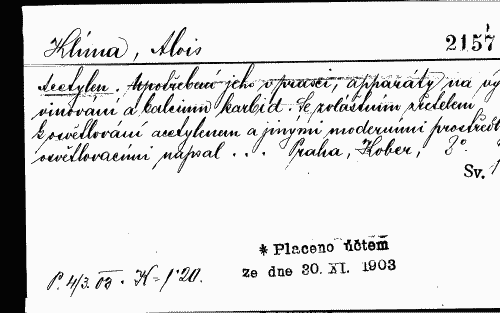 Klíma, Alois
2157
Acetylen. Upotřebení jeho v praxi, apparáty na vý
vinování a kalcium karbid. Se zvláštním zřetelem
k osvětlování acetylenem a jinými moderními prostřed
osvětlovacími napsal . . . Praha, Kober, 8°.
Sv. 1
* Placeno účtem
ze dne 30. XI. 1903
P. 4/3. 03. K = 1·20.